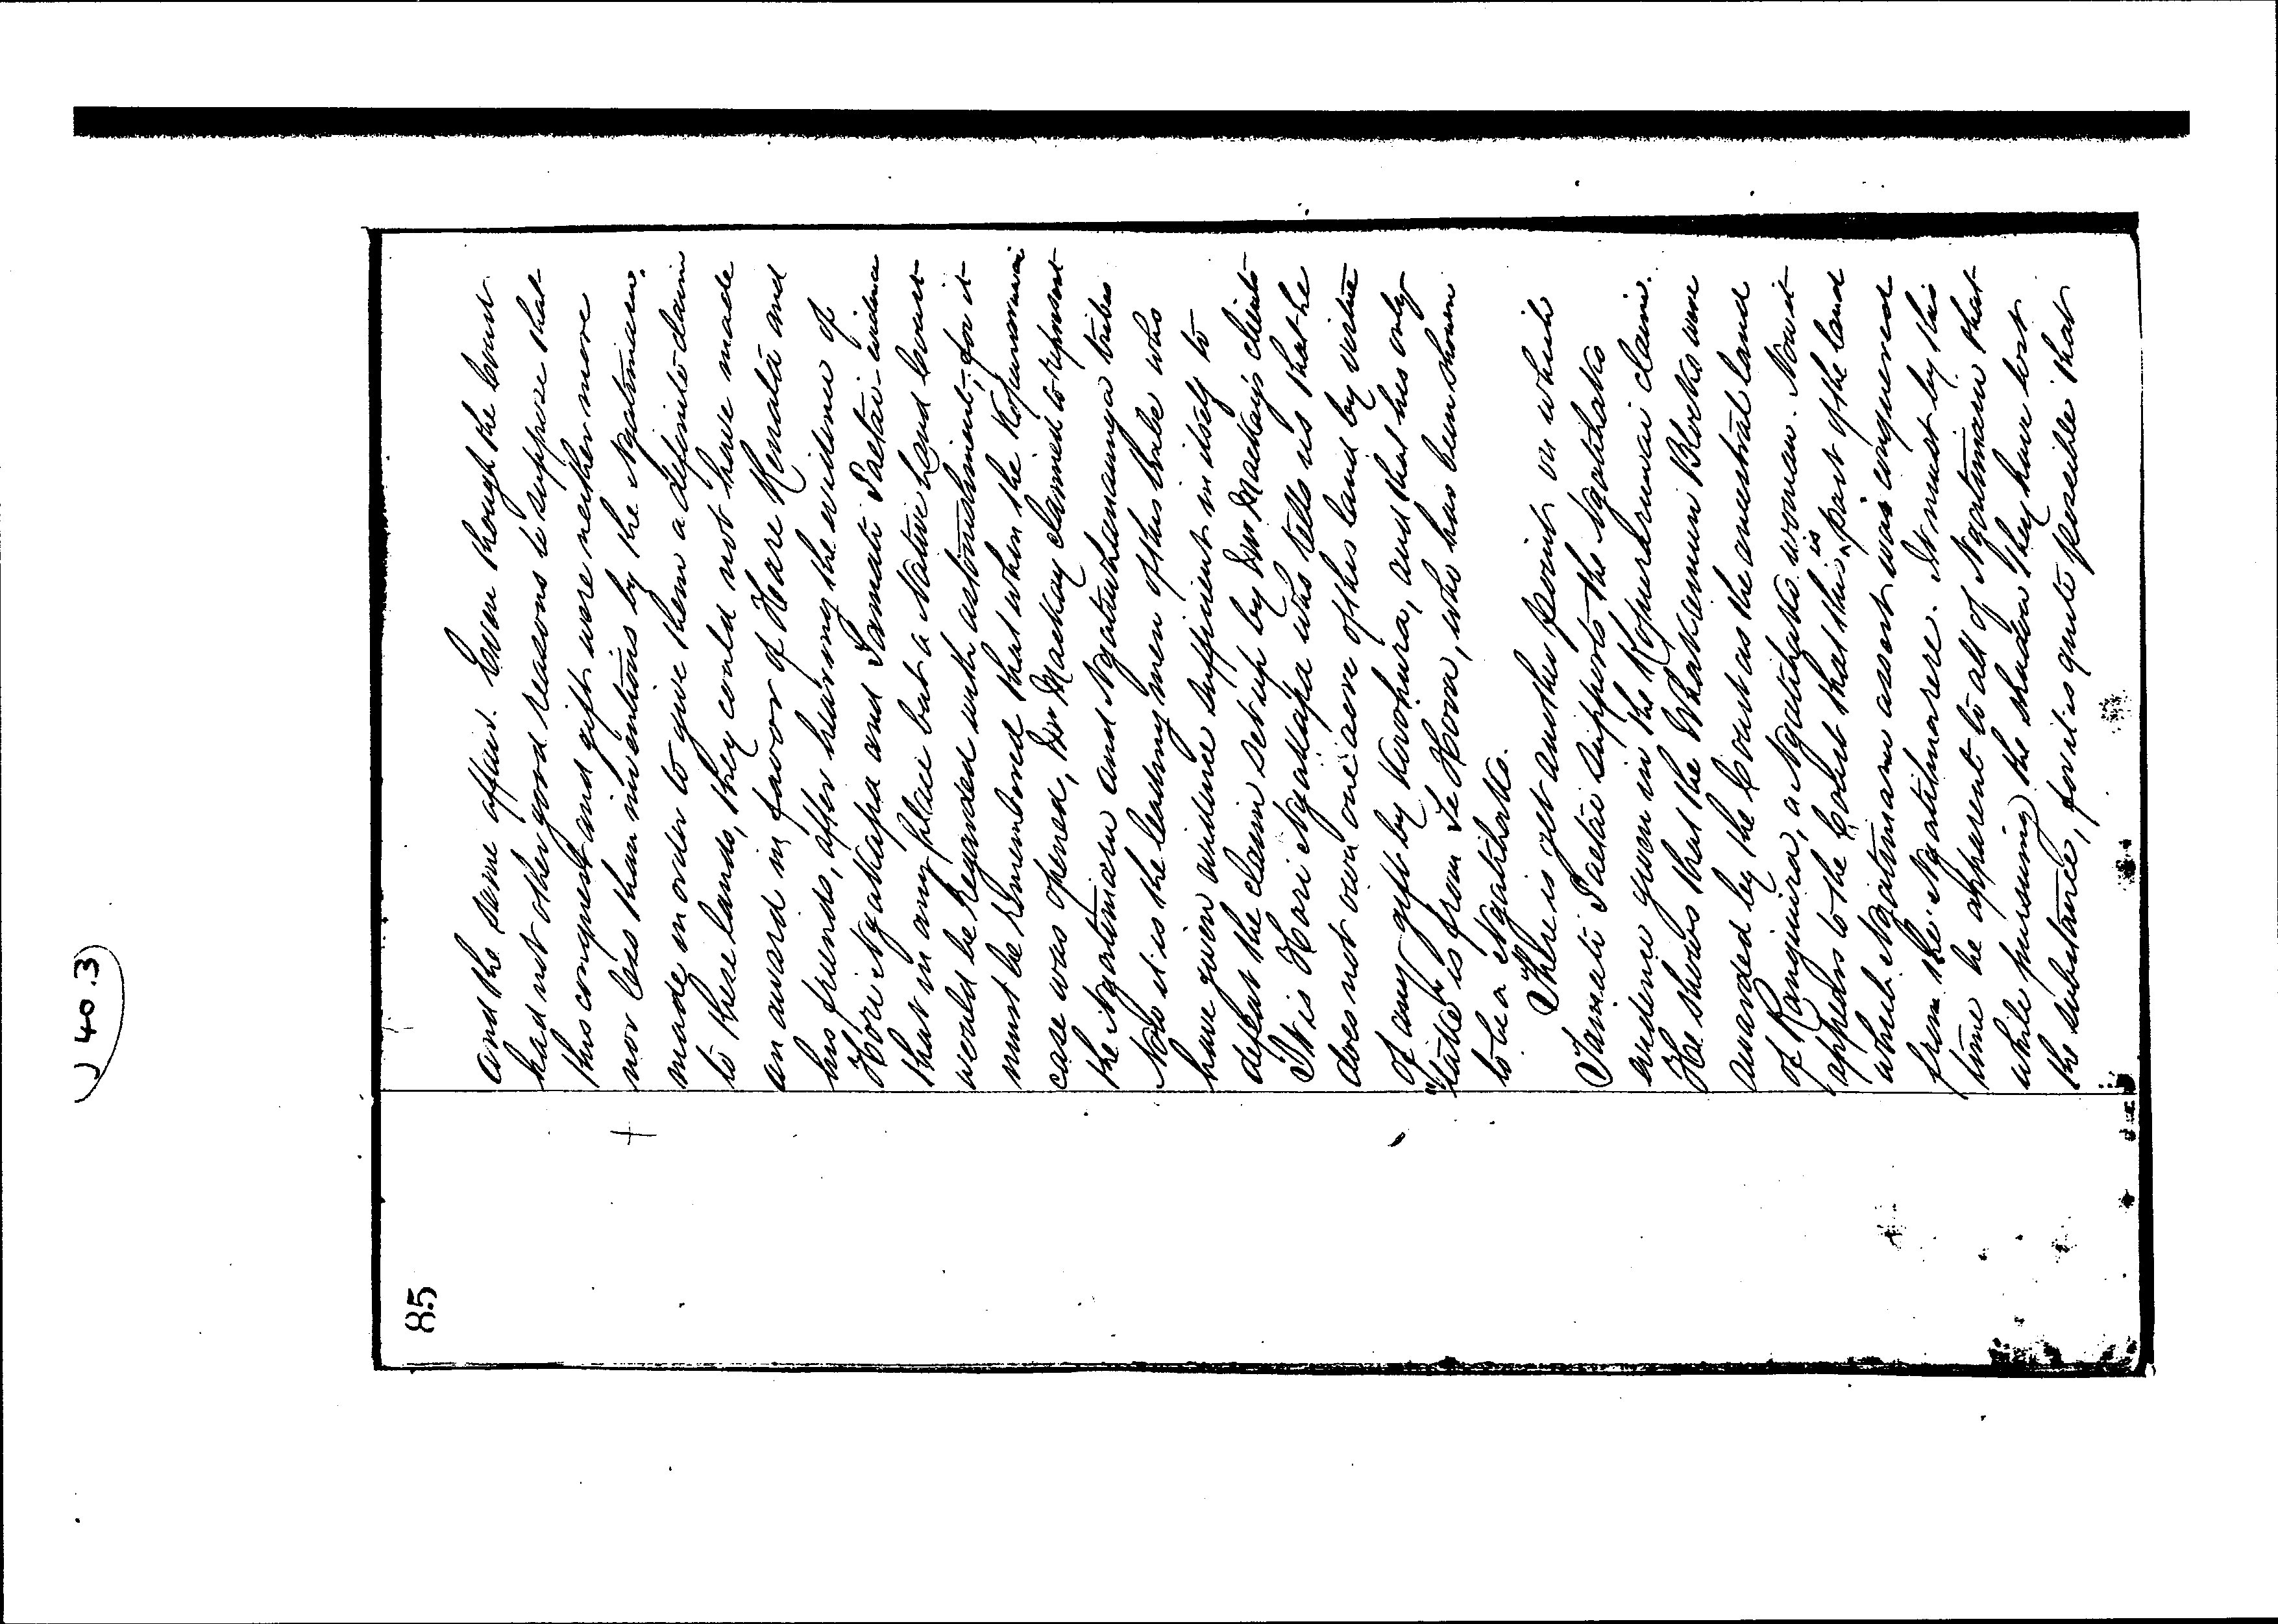 J 40.3
85
and the same affair. Even though the Court
had not other good reasons to suppose that
this conquest and gift were neither more
nor less than inventions by the Ngatimaru.
made in order to give them a definite claim
to these lands, they could not have made
an award in favor of Hare Renata and
his friends, after hearing the evidence of
Hori Ngakapa and Tamati Paetai – evidence
that in any place but a Native Land Court
would be regarded with astonishment, for it
must be remembered that when the Kopuraruwai
case was opened, Mr Mackay claimed to represent
the Ngatimaru and Ngatiwhanaunga tribes
Now it is the leading men of this tribe who
have given evidence sufficient in itself to
defeat the claim set up by Mr Mackay's clients
It is Hori Ngakapa who tells us that he
does not own one acre of this land by virtue
of any gift by Kiwhura, and that his only
"take" is from Te Horu, who has been shown
to be a Ngatihako.
There is yet another point on which
Tamati Paetai supports the Ngatihako
evidence given in the Kopuraruwai claim.
He shows that the Whakamuri Blocks were
awarded by the Court as the ancestral land
of Ranguira, a Ngatihako woman. Now it
appears to the Court that this is part of the land
which Ngatimaru assert was conquered
from the Ngatimarere. It must by this
time be apparent to all of Ngatimaru that
while pursuing the shadow they have lost
the substance, for it is quite possible that